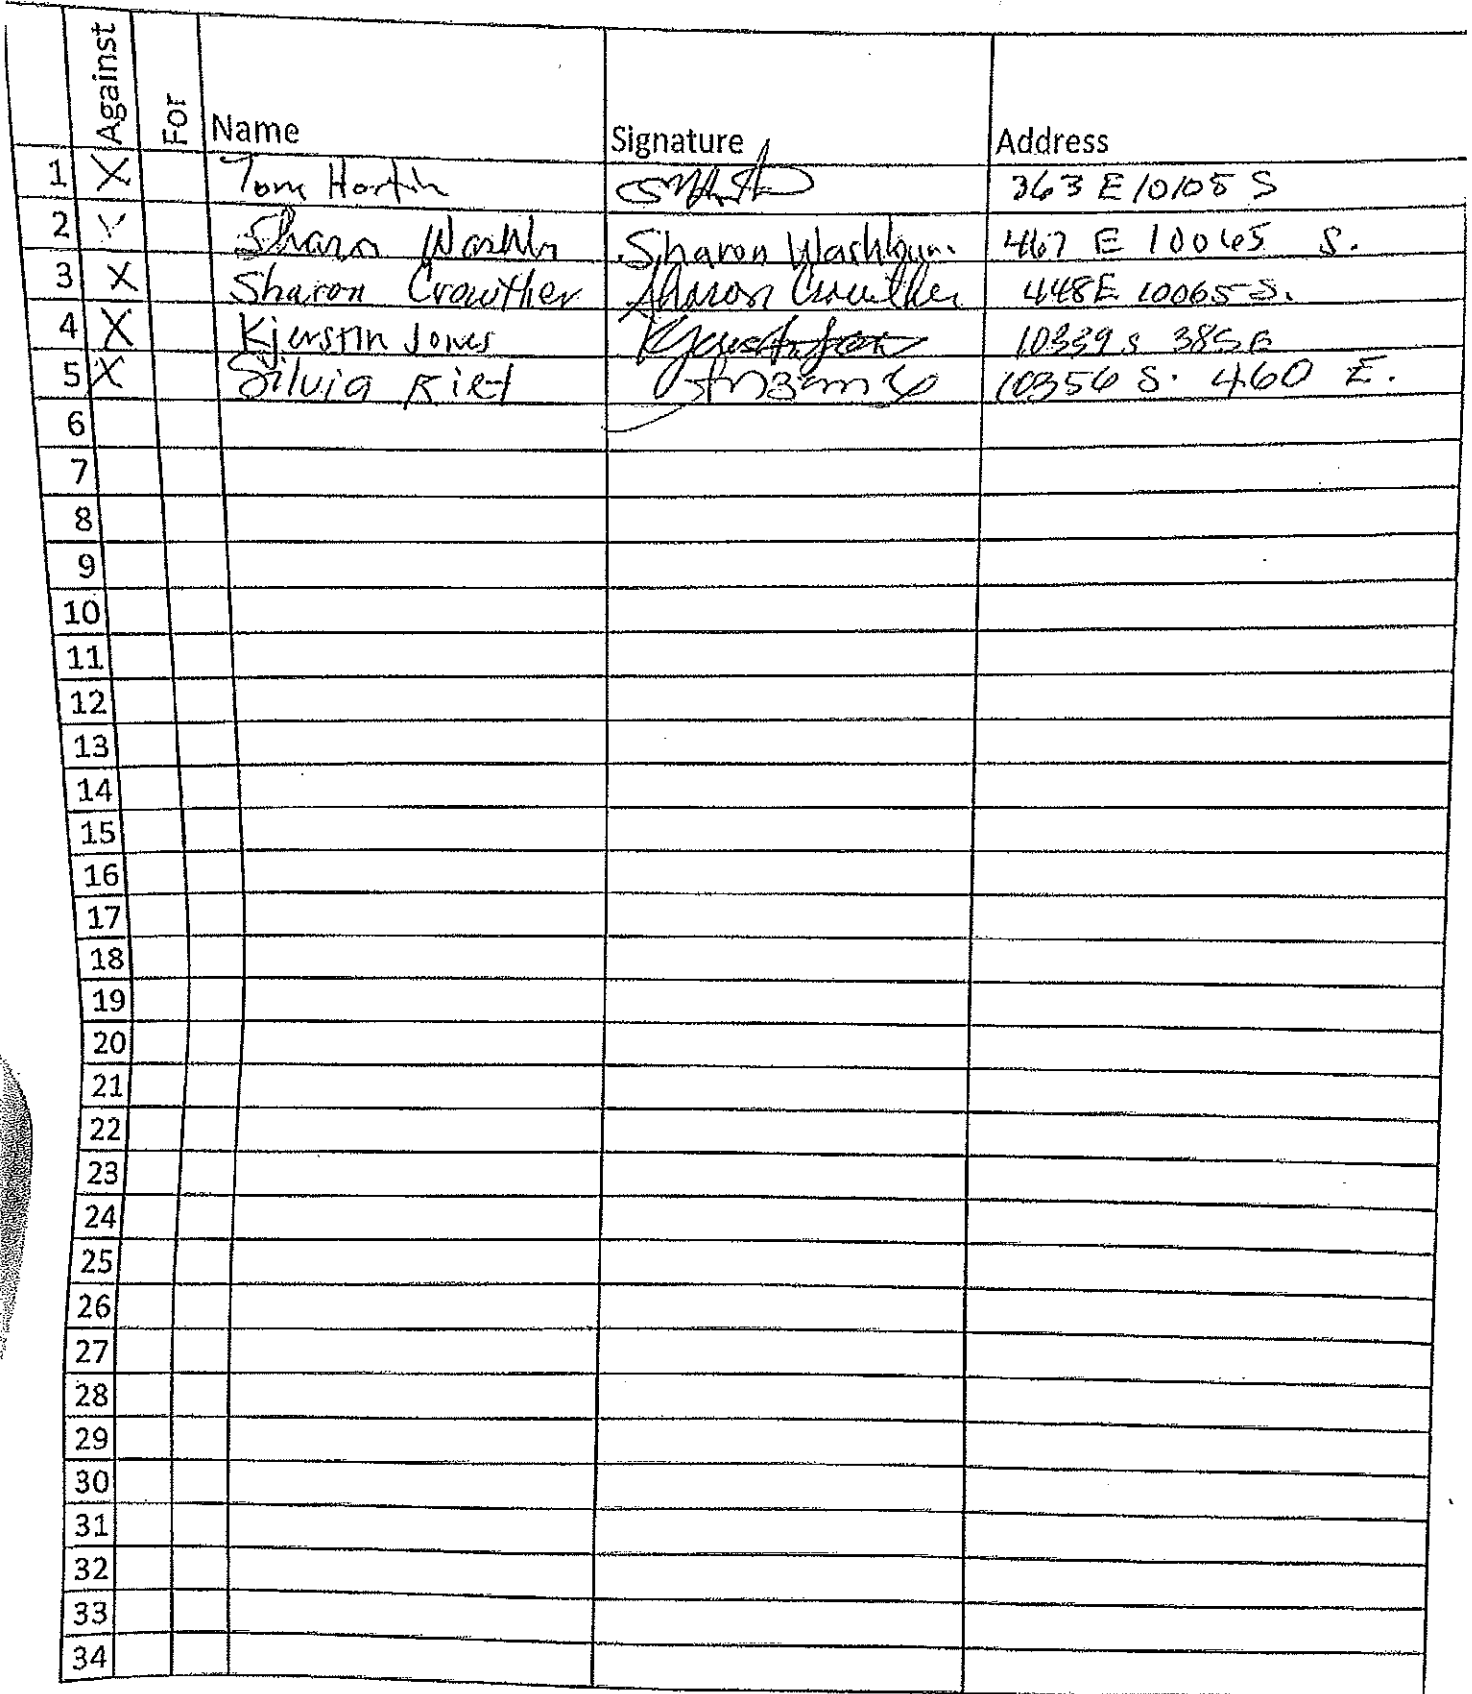 Against For Name Signature Address
1 X Tom Hortin 363 E 10105 S
2 X Sharon Sharon Washburn 467 E 10065 S.
3 X Sharon Crowther Sharon Crowther 448 E 10065 S.
4 X Kjerstin Jones 10339 S 385 E
5 X Silvia 10356 S. 460 E.
6
7
8
9
10
11
12
13
14
15
16
17
18
19
20
21
22
23
24
25
26
27
28
29
30
31
32
33
34